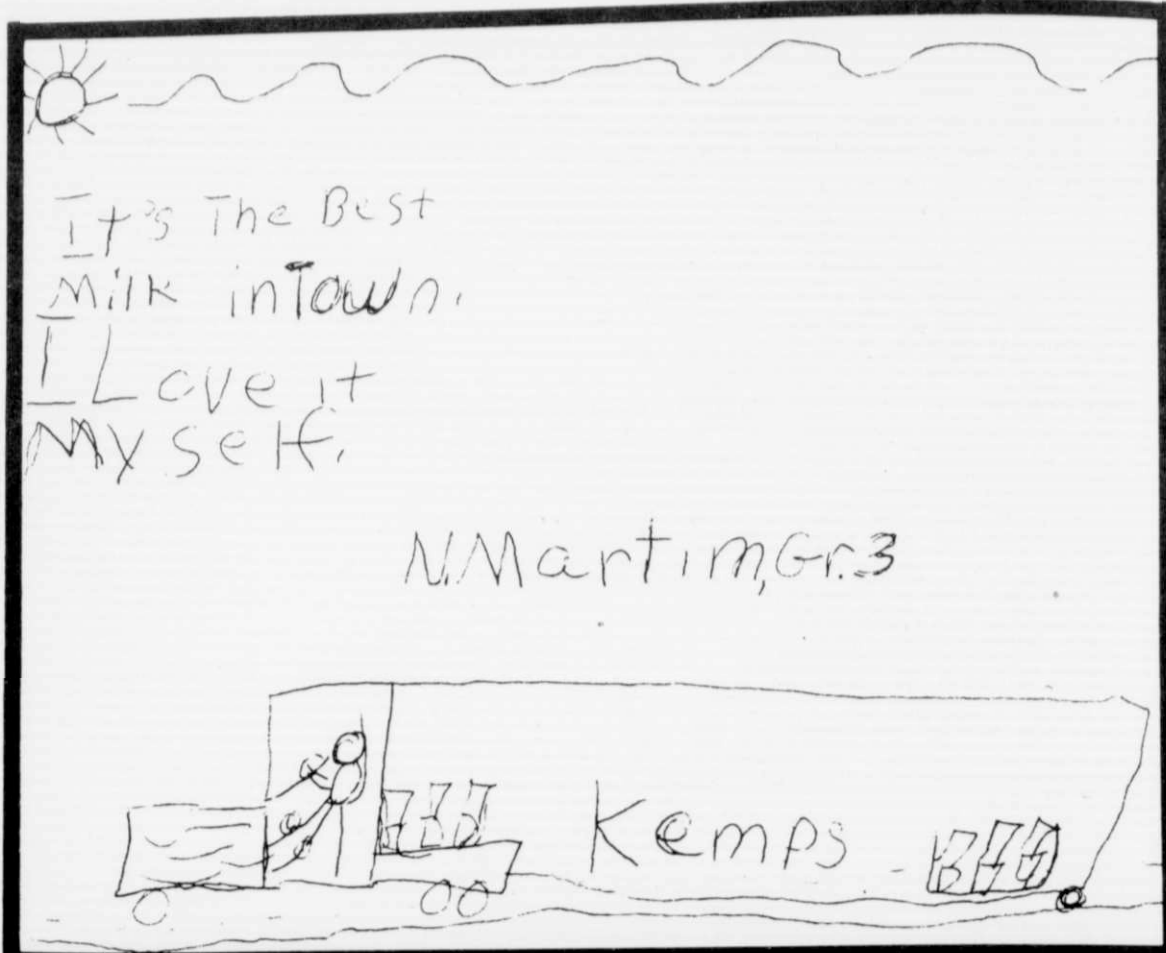 It's The Best
Milk in Town.
I Love it
Myself.
N. Martim, Gr. 3
Kemps